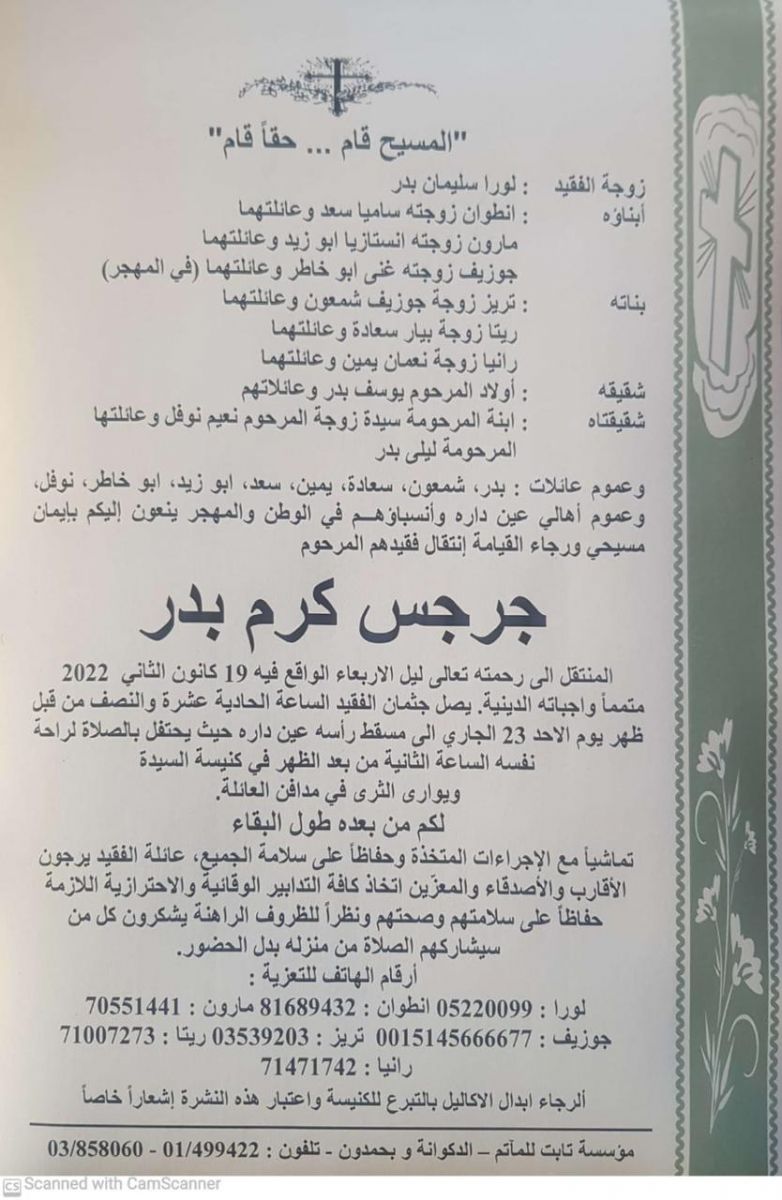 "المسيح قام ... حقاً قام"
زوجة الفقيد : لورا سليمان بدر
أبناؤه : انطوان زوجته ساميا سعد وعائلتهما
مارون زوجته انستازيا ابو زيد وعائلتهما
جوزيف زوجته غنى ابو خاطر وعائلتهما (في المهجر)
بناته : تريز زوجة جوزيف شمعون وعائلتهما
ريتا زوجة بيار سعادة وعائلتهما
رانيا زوجة نعمان يمين وعائلتهما
شقيقه : أولاد المرحوم يوسف بدر وعائلاتهم
شقيقتاه : ابنة المرحومة سيدة زوجة المرحوم نعيم نوفل وعائلتها
المرحومة ليلى بدر
وعموم عائلات : بدر، شمعون، سعادة، يمين، سعد، ابو زيد، ابو خاطر، نوفل،
وعموم أهالي عين داره وأنسباؤهم في الوطن والمهجر ينعون إليكم بإيمان
مسيحي ورجاء القيامة إنتقال فقيدهم المرحوم
جرجس كرم بدر
المنتقل الى رحمته تعالى ليل الاربعاء الواقع فيه 19 كانون الثاني 2022
متمماً واجباته الدينية. يصل جثمان الفقيد الساعة الحادية عشرة والنصف من قبل
ظهر يوم الاحد 23 الجاري الى مسقط رأسه عين داره حيث يحتفل بالصلاة لراحة
نفسه الساعة الثانية من بعد الظهر في كنيسة السيدة
ويوارى الثرى في مدافن العائلة.
لكم من بعده طول البقاء
تماشياً مع الإجراءات المتخذة وحفاظاً على سلامة الجميع، عائلة الفقيد يرجون
الأقارب والأصدقاء والمعزّين اتخاذ كافة التدابير الوقائية والاحترازية اللازمة
حفاظاً على سلامتهم وصحتهم ونظراً للظروف الراهنة يشكرون كل من
سيشاركهم الصلاة من منزله بدل الحضور.
أرقام الهاتف للتعزية :
لورا : 05220099 انطوان : 81689432 مارون : 70551441
جوزيف : 0015145666677 تريز : 03539203 ريتا : 71007273
رانيا : 71471742
ألرجاء ابدال الاكاليل بالتبرع للكنيسة واعتبار هذه النشرة إشعاراً خاصاً
مؤسسة تابت للمآتم – الدكوانة و بحمدون - تلفون : 01/499422 - 03/858060
CS Scanned with CamScanner